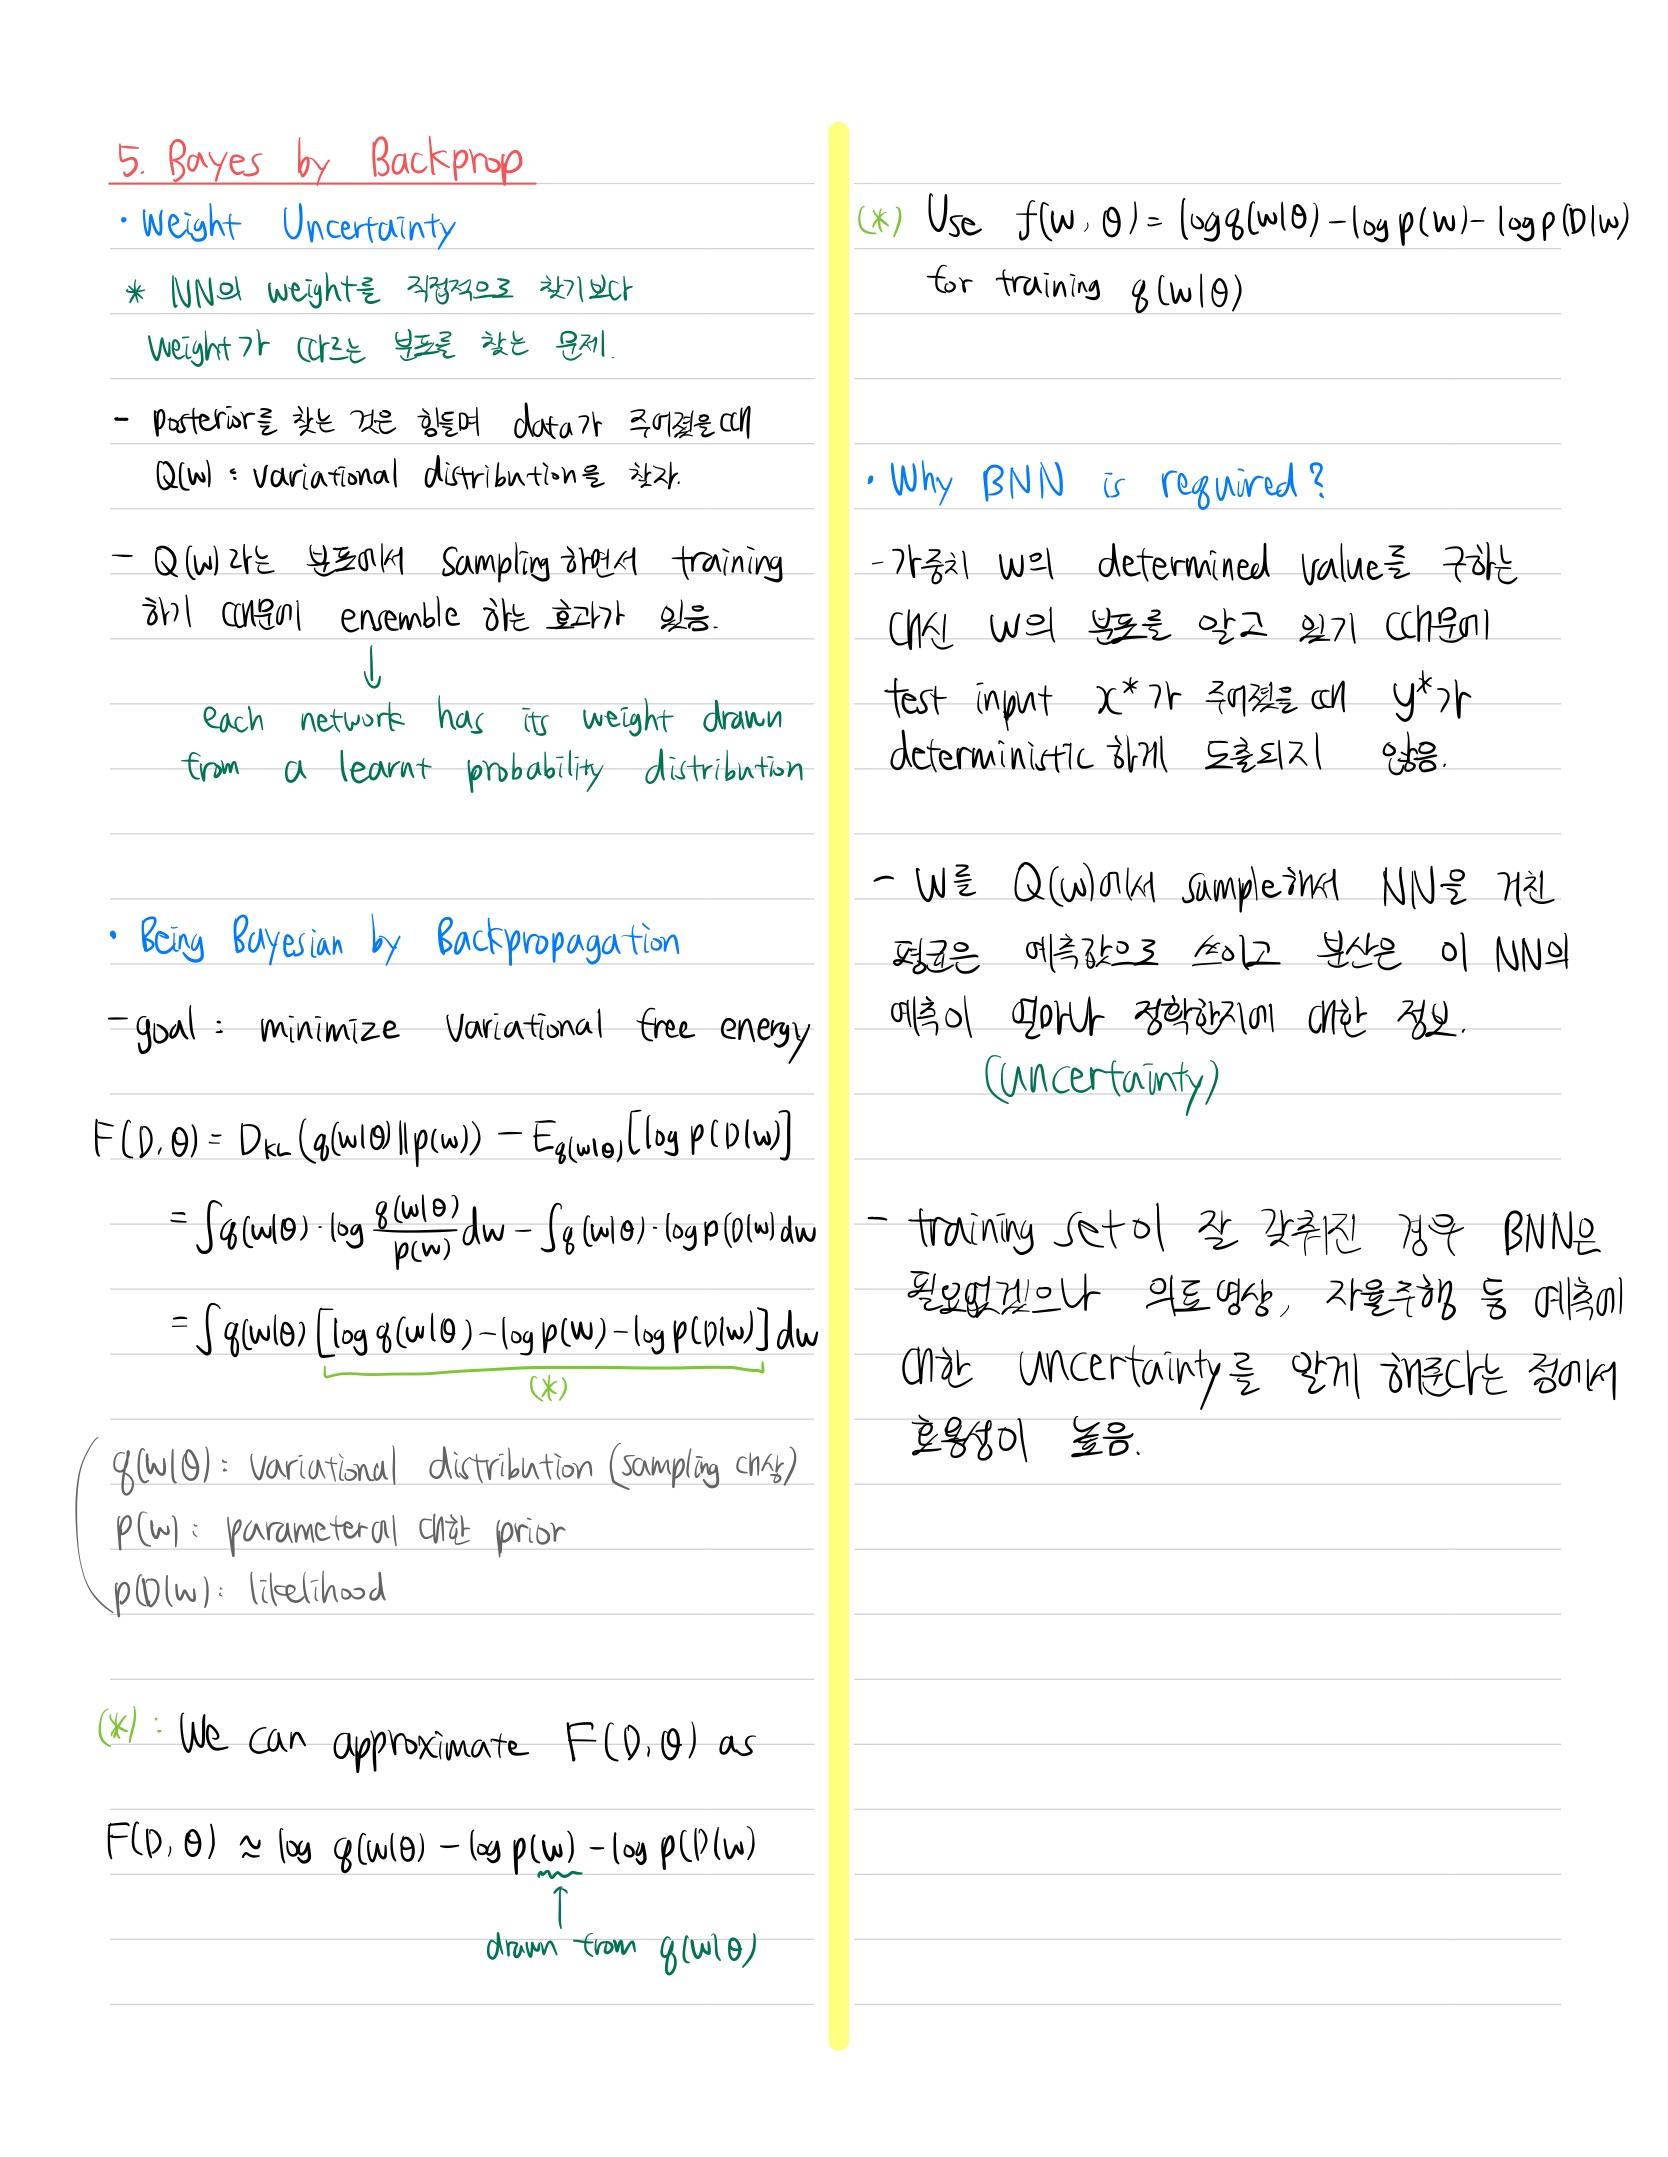 5. Bayes by Backprop
• Weight Uncertainty
* NN의 weight를 직접적으로 찾기보다
weight가 따르는 분포를 찾는 문제.
- posterior를 찾는 것은 힘들며 data가 주어졌을 때
Q(w) : variational distribution을 찾자.
- Q(w)라는 분포에서 sampling하면서 training
하기 때문에 ensemble 하는 효과가 있음.
↓
each network has its weight drawn
from a learnt probability distribution
• Being Bayesian by Backpropagation
- goal : minimize variational free energy
F(D, θ) = D_KL(q(w|θ)||p(w)) - E_q(w|θ)[log p(D|w)]
= ∫q(w|θ)·log q(w|θ)/p(w) dw - ∫q(w|θ)·log p(D|w) dw
= ∫q(w|θ) [log q(w|θ) - log p(w) - log p(D|w)] dw
(*)
q(w|θ) : variational distribution (sampling 대상)
p(w) : parameter에 대한 prior
p(D|w) : likelihood
(*) : We can approximate F(D, θ) as
F(D, θ) ≈ log q(w|θ) - log p(w) - log p(D|w)
↑
drawn from q(w|θ)
(*) Use f(w, θ) = log q(w|θ) - log p(w) - log p(D|w)
for training q(w|θ)
• Why BNN is required?
- 가중치 w의 determined value를 구하는
대신 w의 분포를 알고 있기 때문에
test input x*가 주어졌을 때 y*가
deterministic하게 도출되지 않음.
- w를 Q(w)에서 sample해서 NN을 거친
평균은 예측값으로 쓰이고 분산은 이 NN의
예측이 얼마나 정확한지에 대한 정보.
(uncertainty)
- training set이 잘 갖춰진 경우 BNN은
필요없겠으나 의료영상, 자율주행 등 예측에
대한 uncertainty를 알게 해준다는 점에서
효용성이 높음.